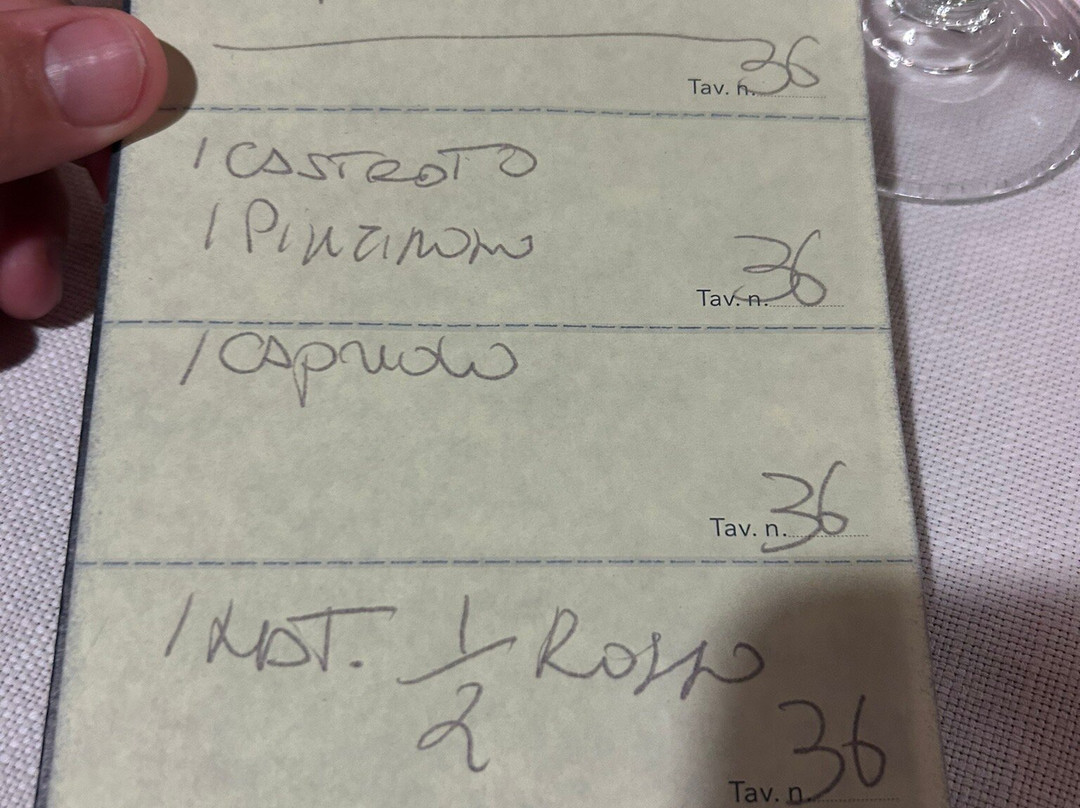 Tav. n. 36
1 CASTRATO
1 Pinzimonio
Tav. n. 36
1 Capriolo
Tav. n. 36
1 NAT. 1/2 Rosso
Tav. n. 36